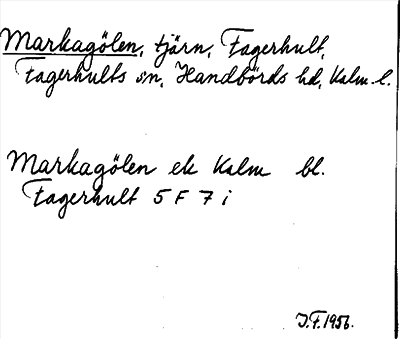 Markagölen, tjärn, Fagerhult,
Fagerhults sn, Handbörds hd, Kalm. l.
Markagölen ek Kalm bl.
Fagerhult 5 F 7 i
J.F. 1956.